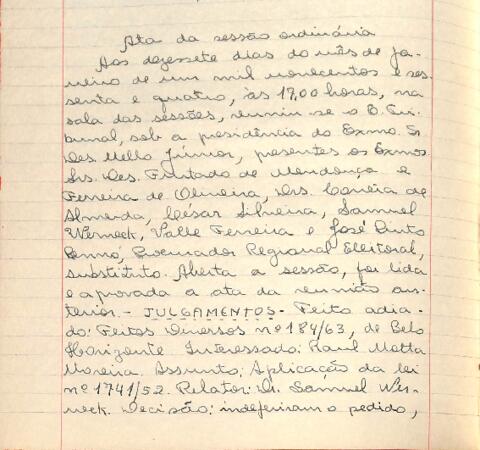 Ata da sessão ordinária
Aos dezessete dias do mês de ja-
neiro de um mil novecentos e ses
senta e quatro, às 17,00 horas, na
sala das sessões, reuniu-se o E. Tri-
bunal, sob a presidência do Exmo. Sr.
Des. Mello Júnior, presentes os Exmos.
Srs. Des. Furtado de Mendonça e
Ferreira de Oliveira, Drs. Correia de
Almerda, César Silveira, Samuel
Werneck, Valle Ferreira e José Pinto
Renó, Procurador Regional Eleitoral,
substituto. Aberta a sessão, foi lida
e aprovada a ata da reunião an-
terior. - JULGAMENTOS - Feito adia-
do: Feitos Diversos nº 184/63, de Belo
Horizonte Interessado: Raul Motta
Moreira. Assunto: Aplicação da lei
nº 1741/52. Relator: Dr. Samuel Wer-
neck. Decisão: indeferiram o pedido,